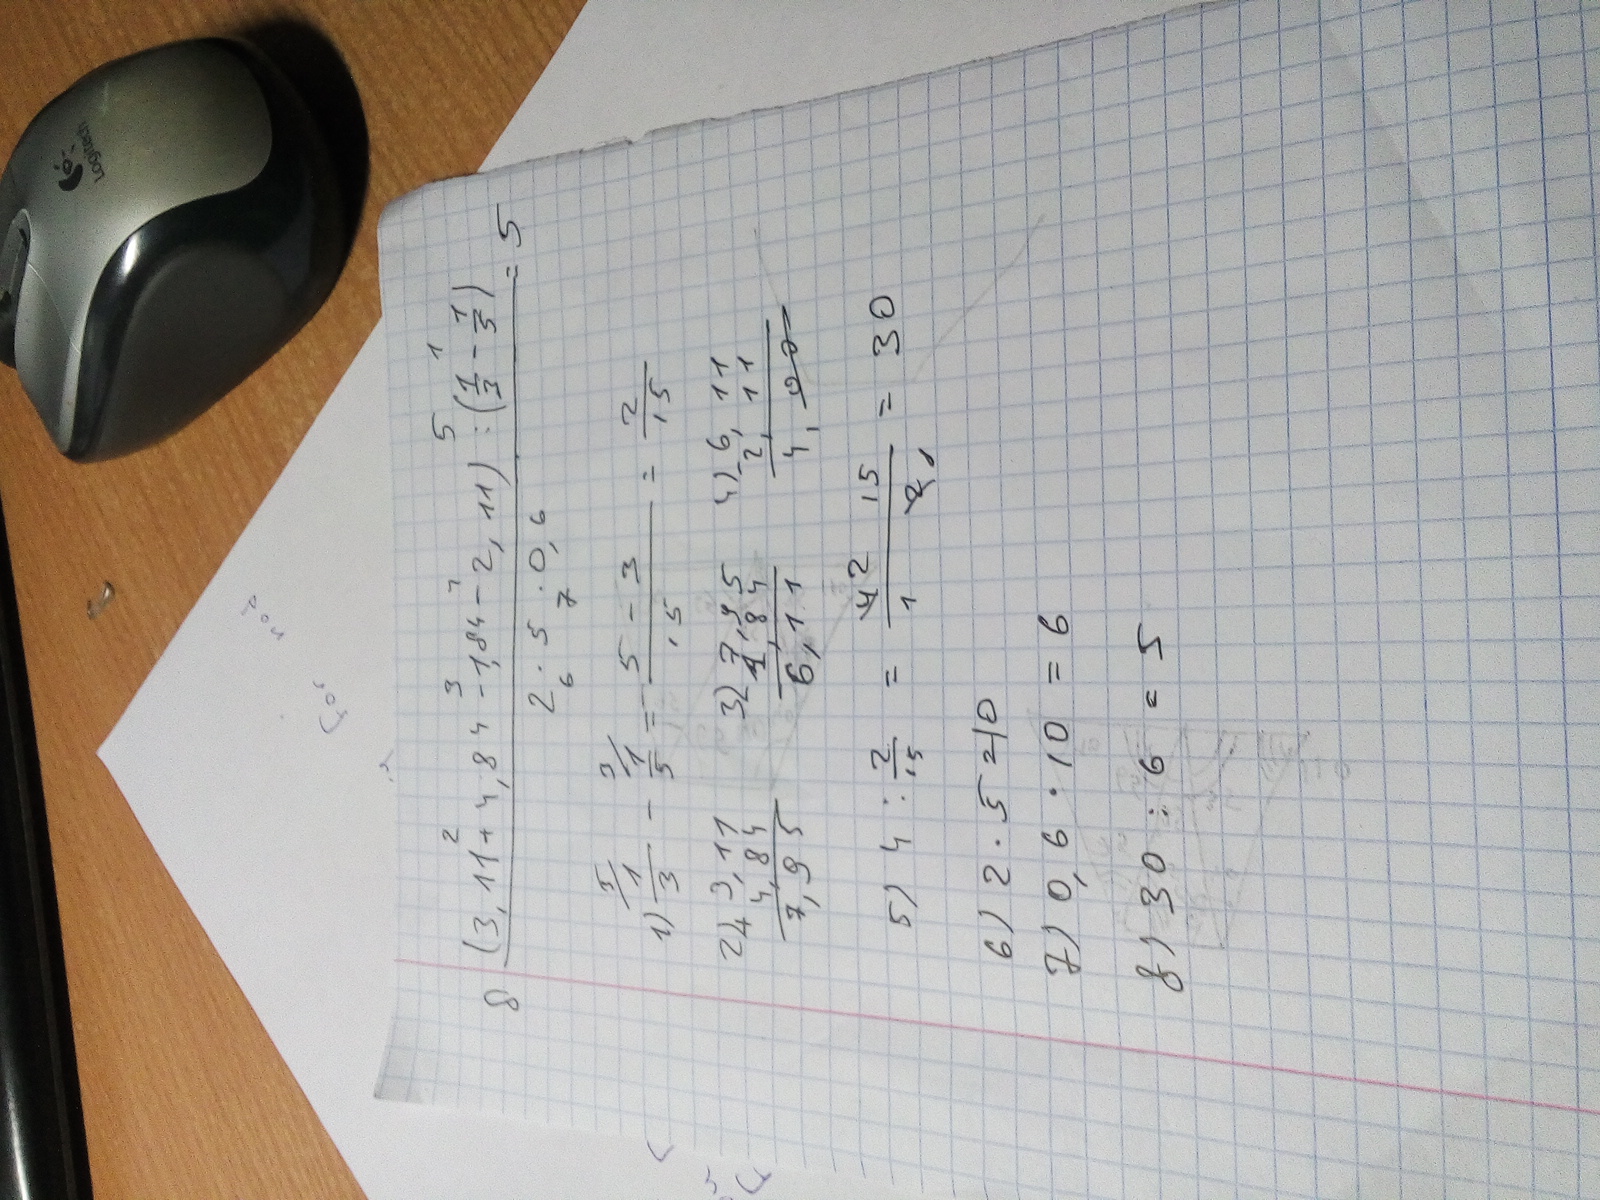 8 (3,11 + 4,84 - 1,84 - 2,11) : (1/3 - 1/5) / 2 · 5 · 0,6 = 5
1) 1/3 - 1/5 = 5 - 3 / 15 = 2/15
2) + 3,11 4,84 7,95 3) 7,95 1,84 6,11 4) - 6,11 2,11 4,00
5) 4 : 2/15 = 4 2 15 / 1 2 1 = 30
6) 2 · 5 = 10
7) 0,6 · 10 = 6
8) 30 : 6 = 5
Logitech